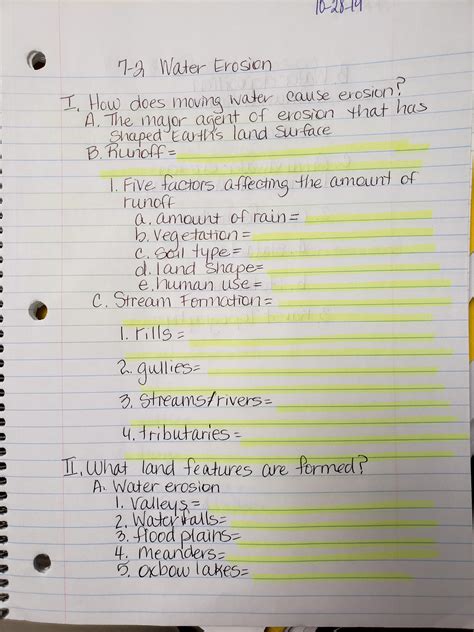 10-28-19
7-2 Water Erosion
I. How does moving water cause erosion?
A. The major agent of erosion that has
shaped Earth's land surface
B. Runoff=
1. Five factors affecting the amount of
runoff
a. amount of rain=
b. vegetation=
c. soil type=
d. land shape=
e. human use=
C. Stream Formation=
1. rills=
2. gullies=
3. Streams/rivers=
4. tributaries=
II. What land features are formed?
A. Water erosion
1. Valleys=
2. Waterfalls=
3. flood plains=
4. Meanders=
5. oxbow lakes=